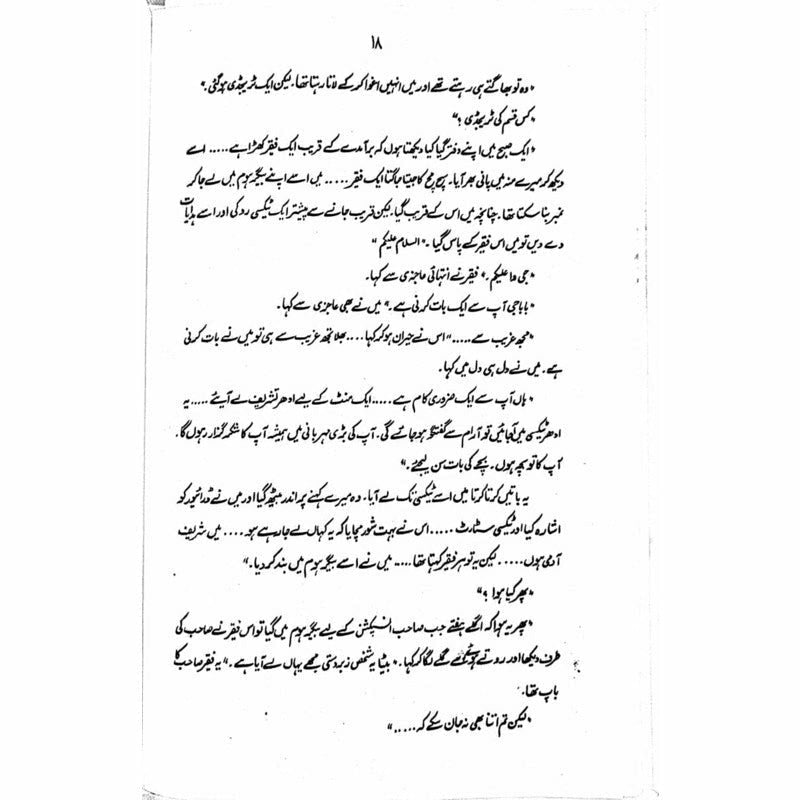 ۱۸
"وہ تو بھاگتے ہی رہتے تھے اور میں انہیں اغوا کر کے لاتا رہتا تھا۔ لیکن ایک ٹریجڈی ہو گئی۔"
"کس قسم کی ٹریجڈی ؟"
"ایک صبح میں اپنے دفتر گیا کیا دیکھتا ہوں کہ برآمدے کے قریب ایک فقیر کھڑا ہے ..... اسے
دیکھ کر میرے منہ میں پانی بھر آیا۔ سچ مچ کا جیتا جاگتا ایک فقیر ..... میں اسے اپنے بیگرہوم میں لے جا کر
نمبر بنا سکتا تھا۔ چنانچہ میں اس کے قریب گیا۔ لیکن قریب جانے سے پیشتر ایک ٹیکسی روکی اور اسے ہدایات
دے دیں تو میں اس فقیر کے پاس گیا۔ "السلام علیکم"
"جی وا علیکم۔" فقیر نے انتہائی عاجزی سے کہا۔
"باباجی آپ سے ایک بات کرنی ہے۔" میں نے بھی عاجزی سے کہا۔
"مجھ غریب سے ....." اس نے حیران ہو کر کہا .... بھلا تجھ غریب سے ہی تو میں نے بات کرنی
ہے۔ میں نے دل ہی دل میں کہا۔
"ہاں آپ سے ایک ضروری کام ہے ..... ایک منٹ کے لیے ادھر تشریف لے آیئے ..... یہ
ادھر ٹیکسی میں آجائیں تو آرام سے گفتگو ہو جائے گی۔ آپ کی بڑی مہربانی میں ہمیشہ آپ کا شکر گزار رہوں گا۔
آپ کا تو بچہ ہوں۔ بچے کی بات سن لیجئے۔"
یہ باتیں کرتا کرتا میں اسے ٹیکسی تک لے آیا۔ وہ میرے کہنے پر اندر بیٹھ گیا اور میں نے ڈرائیور کو
اشارہ کیا اور ٹیکسی سٹارٹ ..... اس نے بہت شور مچایا کہ یہ کہاں لے جا رہے ہو .... میں شریف
آدمی ہوں ..... لیکن یہ تو ہر فقیر کہتا تھا ..... میں نے اسے بیگر ہوم میں بند کر دیا۔"
"پھر کیا ہوا ؟"
"پھر یہ ہوا کہ اگلے ہفتے جب صاحب انسپکشن کے لیے بیگر ہوم میں گیا تو اس فقیر نے صاحب کی
طرف دیکھا اور روتے ہوئے اسے گلے لگا کر کہا۔ "بیٹا یہ شخص زبردستی مجھے یہاں لے آیا ہے۔" یہ فقیر صاحب کا
باپ تھا۔
"لیکن تم اتنا بھی نہ جان سکے کہ ....."